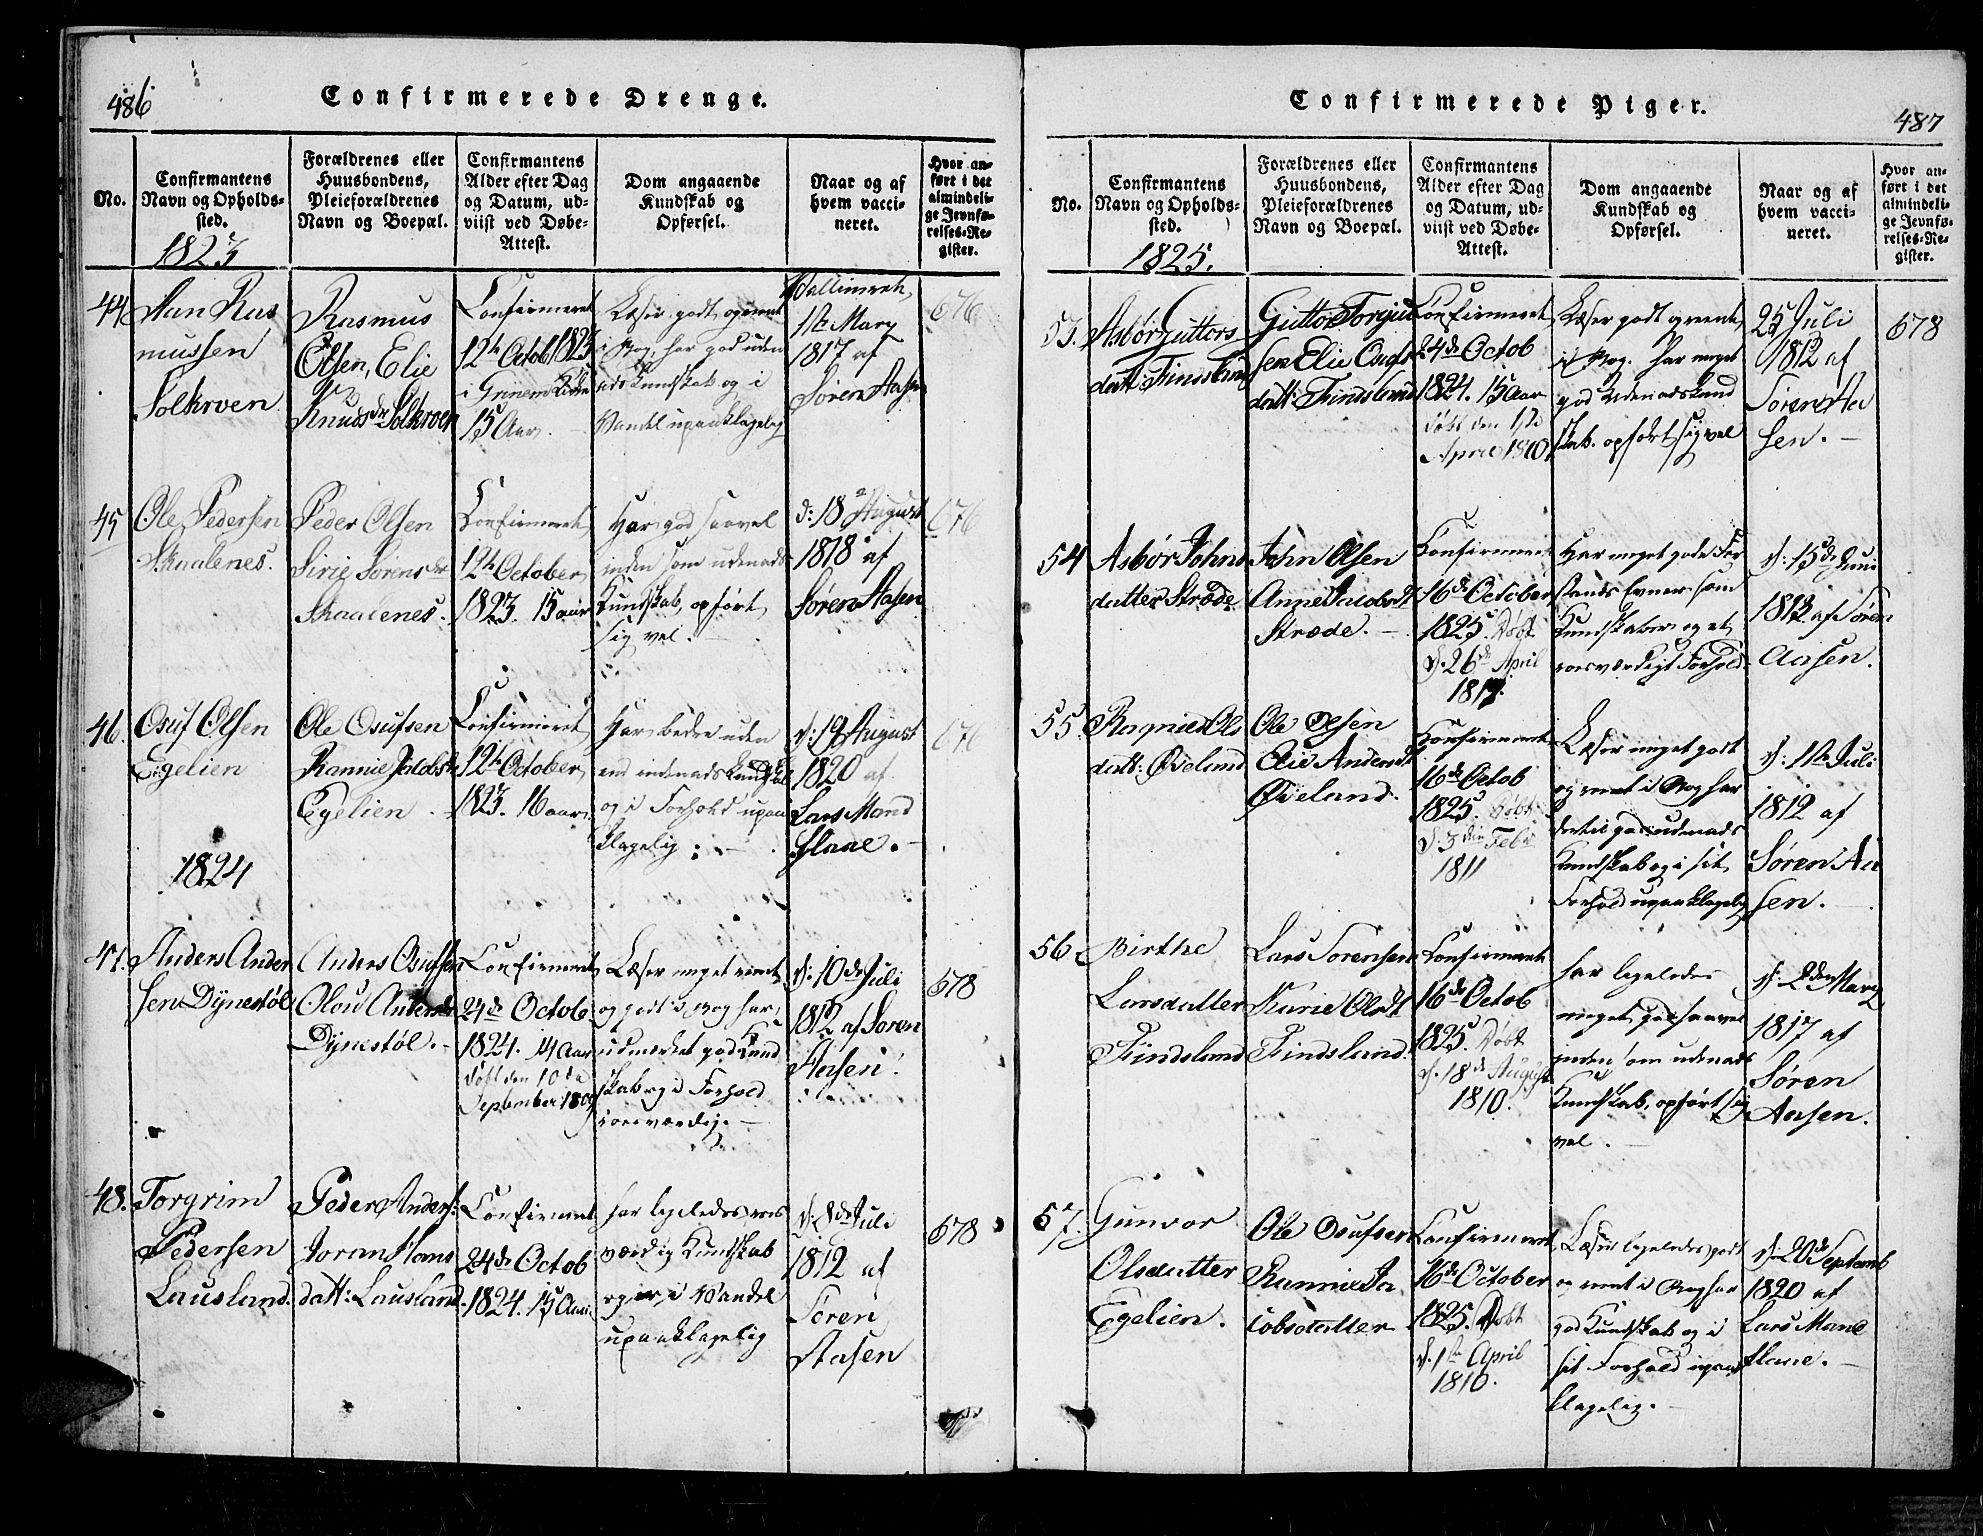 486
Confirmerede Drenge.
No.
Confirmantens
Navn og Opholds-
sted.
1823
Forældrenes eller
Huusbondens,
Pleieforældrenes
Navn og Boepæl.
Confirmantens
Alder efter Dag
og Datum, ud-
viist ved Døbe-
Attest.
Dom angaaende
Kundskab og
Opførsel.
Naar og af
hvem vacci-
neret.
Hvor an-
ført i det
almindeli-
ge Jevnfø-
relses-Re-
gister.
44
Rasmus
Olsen, Elie
Knudsdr
Confirmeret
12te Octob 1823
15 Aar
Læser godt og reent
i Bog, har god uden
ads Kundskab og i
Vandel upaaklagelig
1ste Marz
1817 af
Søren Aasen
676
45
Ole Pedersen
Skaalenes.
Peder Olsen
Sirie Sørensdr
Skaalenes.
Confirmeret
12te October
1823. 15 aar
Har god saavel
inden som udenads
Kundskab, opført
sig vel.
d: 18 August
1818 af
Søren Aasen
676
46.
Osuf Olsen
Egelien
Ole Osufsen
Rannie Jacobsdr
Egelien
Confirmeret
12te October
1823. 16 aar
Har bedre uden
end indenads Kundskab
og i Forhold upaa
klagelig.
d: 19 August
1820 af
Lars Mand
flaae.
676
1824
47.
Anders Ander
sen Dynestøl
Anders Osufsen
Olou Andersdr
Dynestøl.
Confirmeret
24de Octob
1824. 14 Aar
døbt den 10de
September 1809
Læser meget reent
og godt i Bog har
udmerket god Kund
skab og i Forhold
roesværdig.
d: 10de Juli
1812 af Søren
Aasen.
678
48.
Torgrim
Pedersen
Lausland.
Peder Anders:
Joran Hans
datt: Lausland
Confirmeret
24de Octob
1824. 15 Aar
har ligeledes roes
værdig Kundskab
og er i Vandel
upaaklagelig
d: 8de Juli
1812 af
Søren
Aasen
678
487
Confirmerede Piger.
No.
Confirmantens
Navn og Opholds-
sted.
1825.
Forældrenes eller
Huusbondens,
Pleieforældrenes
Navn og Boepæl.
Confirmantens
Alder efter Dag
og Datum, ud-
viist ved Døbe-
Attest.
Dom angaaende
Kundskab og
Opførsel.
Naar og af
hvem vacci-
neret.
Hvor an-
ført i det
almindeli-
ge Jevnfø-
relses-Re-
gister.
53.
Asbør Guttors
datt: Findsland
Guttor Torgiu
sen Elie Osufs
datt: Findsland
Confirmeret
24de Octob
1824. 15 Aar
døbt den 1ste
April 1810
Læser godt og reent
i Bog. har meget
god Udenads Kund
skab. opført sig vel
25 Juli
1812 af
Søren Aa
sen.
678
54
Asbør Johns
datter Stræde
John Olsen
Anne Jacobsdt
Stræde.
Confirmeret
16de October
1825. Døbt
d. 26de April
Har meget gode For
stands Evner som
Kundskaber og et
roesværdigt Forhold.
d: 15de Juni
af Søren
Aasen.
55.
Ragnild Ols
datt: Øveland
Ole Olsen
Elie Andersdt
Øveland.
Confirmeret
16de Octob
1825. Døbt
d. 3die Febr
1811
Læser meget godt
og reent i Bog har
dertil god udenads
Kundskab og i sit
Forhold upaaklagelig
d: 11te Juli
1812 af
Søren Aa
sen.
56.
Birthe
Larsdatter
Findsland
Lars Sørensen
Karie Olsdt
Findsland.
Confirmeret
16de Octob
1825. Døbt
d. 18de August
1810.
har ligeledes
meget god saavel
inden som udenads
Kundskab, opført sig
vel.
d: 2den Marz
1817 af
Søren
Aasen.
57.
Gunvor
Olsdatter
Egelien.
Ole Osufsen
Rannie Ja
cobsdatter
Confirmeret
16de October
1825. Døbt
d. 1ste April
1810.
Læser ligeledes godt
og reent i Bog har
god Kundskab og i
sit Forhold upaa
klagelig.
d: 20de Septemb
1820 af
Lars Mand
flaae.